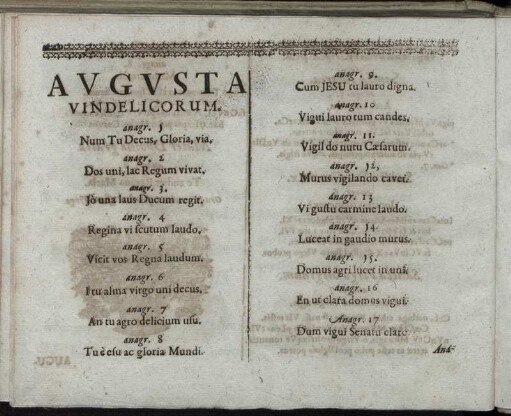 AVGVSTA
VINDELICORUM.
anagr. 1
Num Tu Decus, Gloria, via.
anagr. 2
Dos uni, lac Regium vivat.
anagr. 3.
Io una laus Ducum regit.
anagr. 4
Regina vi scutum laudo.
anagr. 5
Vicit vos Regna laudum.
anagr. 6
I tu alma virgo uni decus.
anagr. 7
An tu agro delicium usu.
anagr. 8
Tu è esu ac gloria Mundi.
anagr. 9.
Cum JESU tu lauro digna.
anagr. 10
Vigui lauro tum candes.
anagr. 11.
Vigil do nutu Cæsarum.
anagr. 12,
Murus vigilando cavet.
anagr. 13
Vi gustu carmine laudo.
anagr. 14.
Luceat in gaudio murus.
anagr. 15.
Domus agri lucet in una.
anagr. 16
En ut clara domus vigui.
Anagr. 17
Dum vigui Senatu claro.
Ana-